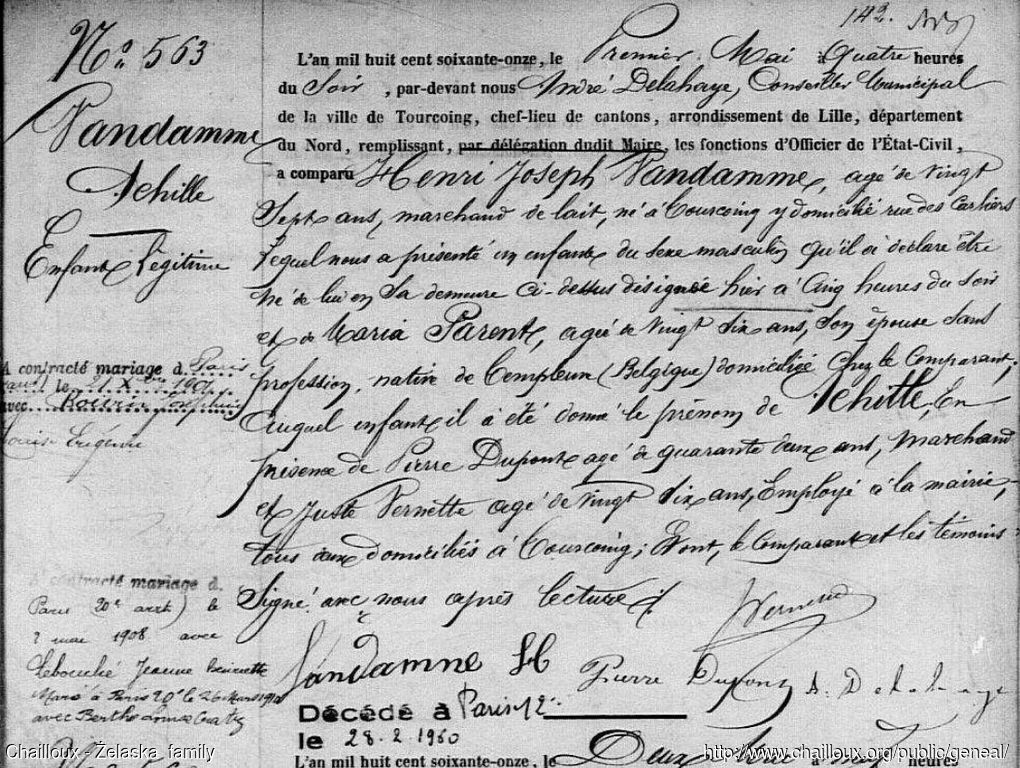 142.
N° 563
Vandamme
Achille
Enfant légitime
L'an mil huit cent soixante-onze, le Premier Mai à Quatre heures
du Soir, par-devant nous André Delahaye, Conseiller Municipal
de la ville de Tourcoing, chef-lieu de cantons, arrondissement de Lille, département
du Nord, remplissant, par délégation dudit Maire, les fonctions d'Officier de l'État-Civil,
a comparu Henri Joseph Vandamme, agé de vingt
Sept ans, marchand de lait, né à Tourcoing y domicilié rue des Carliers
lequel nous a présenté un enfant du sexe masculin qu'il a déclaré être
né de lui en Sa demeure ci-dessus désignée hier à Cinq heures du Soir
et de Maria Parent, agée de vingt six ans, Son épouse Sans
profession, native de Templeuve (Belgique) domiciliée chez le Comparant;
auquel enfant il a été donné le prénom de Achille, En
présence de Pierre Dupont agé de quarante deux ans, Marchand
et Juste Vernette agé de vingt six ans, Employé à la mairie,
tous deux domiciliés à Tourcoing; Et ont, le Comparant et les témoins
Signé avec nous après lecture
Vandamme H
Pierre Dupont
A. Delahaye
A contracté mariage à Paris
le 21 Xbre 1901
avec
Louise Eugénie
A contracté mariage à
Paris 20e arrt) le
mai 1908 avec
Lebouché Jeanne Henriette
Marié à Paris 20e le 26 Mars 1910
avec Berthe
Décédé à Paris 12e
le 28.2.1960
L'an mil huit cent soixante-onze, le Deux Mai à heures
Chailloux - Želaska family
http://www.chailloux.org/public/geneal/